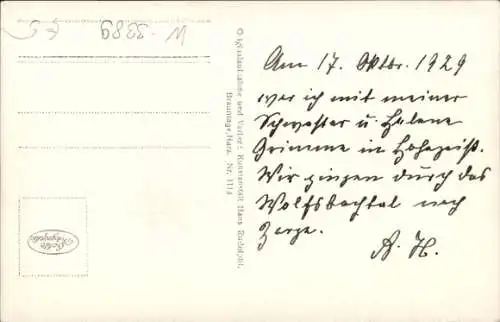 W-3389
Am 17. Oktbr. 1929
war ich mit meiner
Schwester u. Helene
Grimme in Hohegeiß.
Wir gingen durch das
Wolfsbachtal nach
Zorge.
A. H.
© Originalaufnahme und Verlag: Kunstanstalt Hans Rudolphi,
Braunlage, Harz. Nr. 1114